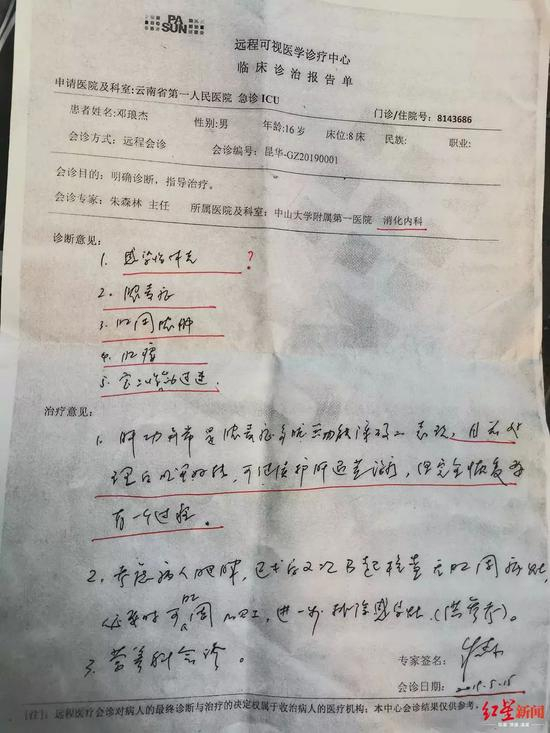 PA
SUN
远程可视医学诊疗中心
临床诊治报告单
申请医院及科室:云南省第一人民医院 急诊ICU
门诊/住院号: 8143686
患者姓名:邓琅杰 性别:男 年龄:16岁 床位:8床 民族: 职业:
会诊方式:远程会诊 会诊编号:昆华-GZ20190001
会诊目的:明确诊断,指导治疗。
会诊专家:朱森林 主任 所属医院及科室:中山大学附属第一医院 消化内科
诊断意见:
1. 感染性休克 ?
2. 脓毒症
3. 肛周脓肿
4. 肛瘘
5.
治疗意见:
1. 肝功异常是脓毒症系统
理后明显好转,可继续护肝退黄治疗,但完全恢复需
有一个过程。
2. 考虑病人肥胖,
3. 营养科会诊。
专家签名:
会诊日期: 2019.5.15
[注]:远程医疗会诊对病人的最终诊断与治疗的决定权属于收治病人的医疗机构;本中心会诊结果仅供参考。
红星新闻